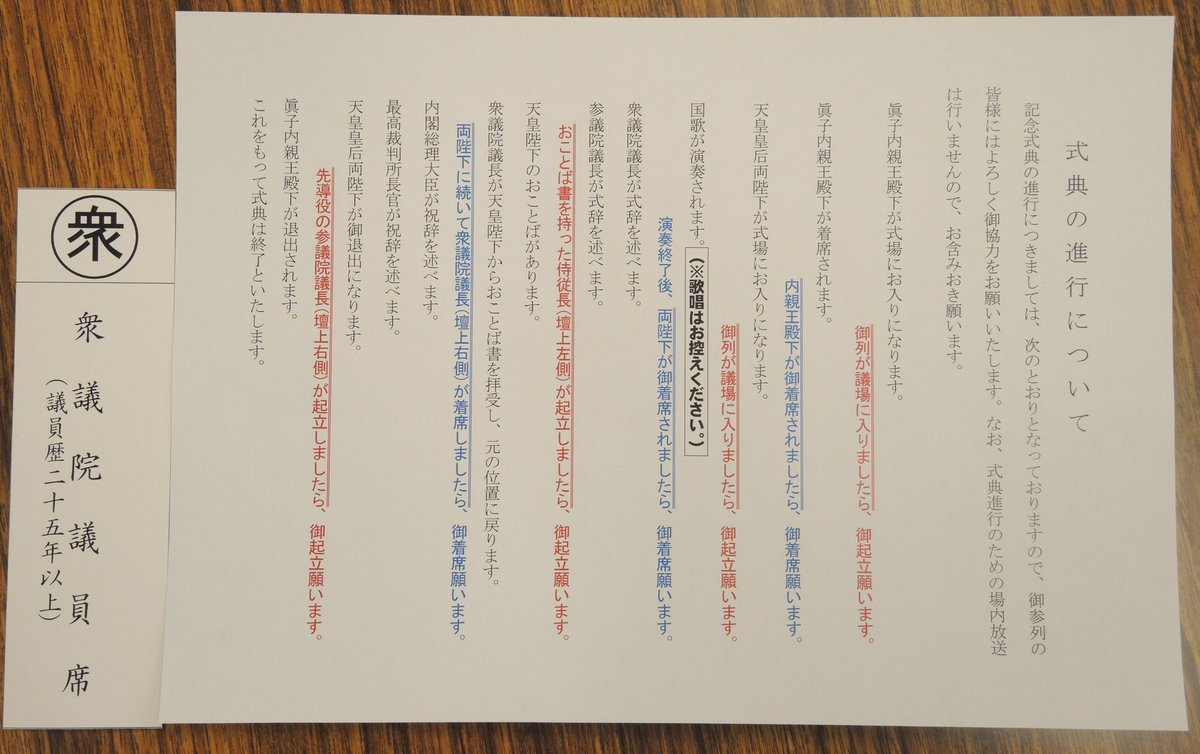 式典の進行について
記念式典の進行につきましては、次のとおりとなっておりますので、御参列の
皆様にはよろしく御協力をお願いいたします。なお、式典進行のための場内放送
は行いませんので、お含みおき願います。
眞子内親王殿下が式場にお入りになります。
御列が議場に入りましたら、御起立願います。
眞子内親王殿下が着席されます。
内親王殿下が御着席されましたら、御着席願います。
天皇皇后両陛下が式場にお入りになります。
御列が議場に入りましたら、御起立願います。
国歌が演奏されます。(※歌唱はお控えください。)
演奏終了後、両陛下が御着席されましたら、御着席願います。
衆議院議長が式辞を述べます。
参議院議長が式辞を述べます。
おことば書を持った侍従長(壇上左側)が起立しましたら、御起立願います。
天皇陛下のおことばがあります。
衆議院議長が天皇陛下からおことば書を拝受し、元の位置に戻ります。
両陛下に続いて衆議院議長(壇上右側)が着席しましたら、御着席願います。
内閣総理大臣が祝辞を述べます。
最高裁判所長官が祝辞を述べます。
天皇皇后両陛下が御退出になります。
先導役の参議院議長(壇上右側)が起立しましたら、御起立願います。
眞子内親王殿下が退出されます。
これをもって式典は終了といたします。
衆
衆議院議員席
(議員歴二十五年以上)